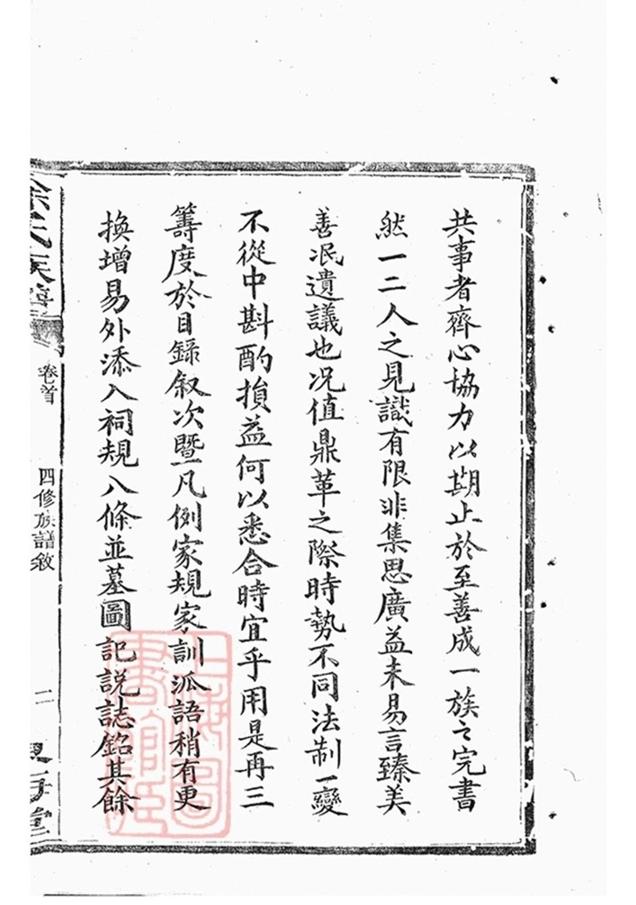 共事者齊心協力以期止於至善成一族之完書
然一二人之見識有限非集思廣益未易言臻美
善泯遺議也况值鼎革之際時勢不同法制一變
不從中斟酌損益何以悉合時宜乎用是再三
籌度於目錄叙次暨凡例家規家訓派語稍有更
換增易外添入祠規八條並墓圖記説誌銘其餘
徐氏族譜
卷首
四修族譜敘
二
東海堂
上海圖書館藏